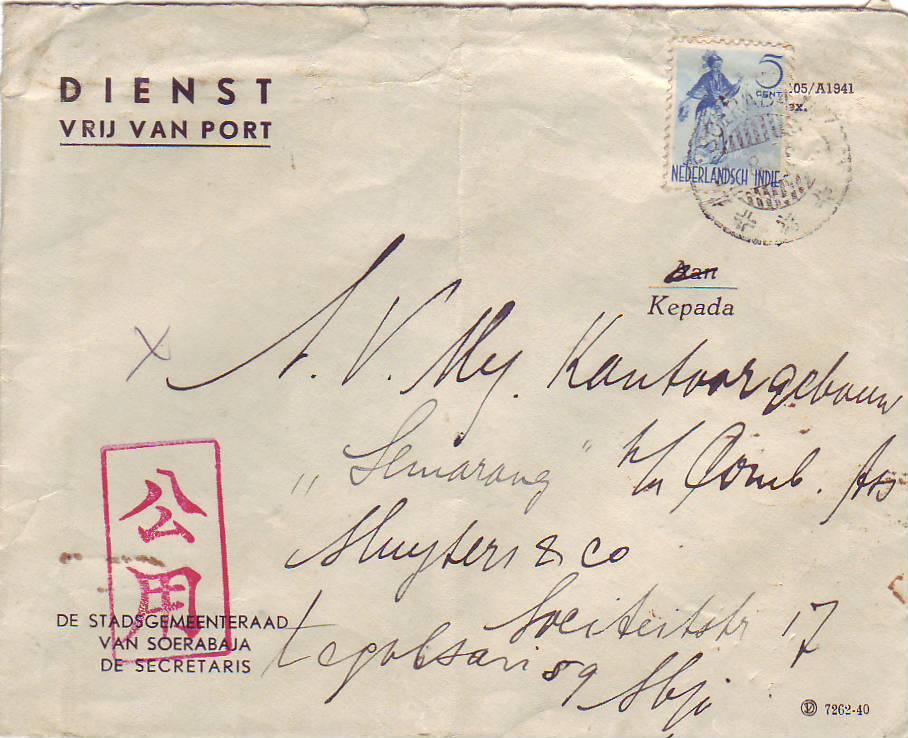 DIENST
VRIJ VAN PORT
5
CENT
NEDERLANDSCH INDIE
105/A1941
ex.
Aan
Kepada
N. V. My. Kantoorgebouw
„Semarang" Comb.
Muyters & co
Societeitstr 17
tegalsari 59 Sbja
公用
DE STADSGEMEENTERAAD
VAN SOERABAJA
DE SECRETARIS
7262-40